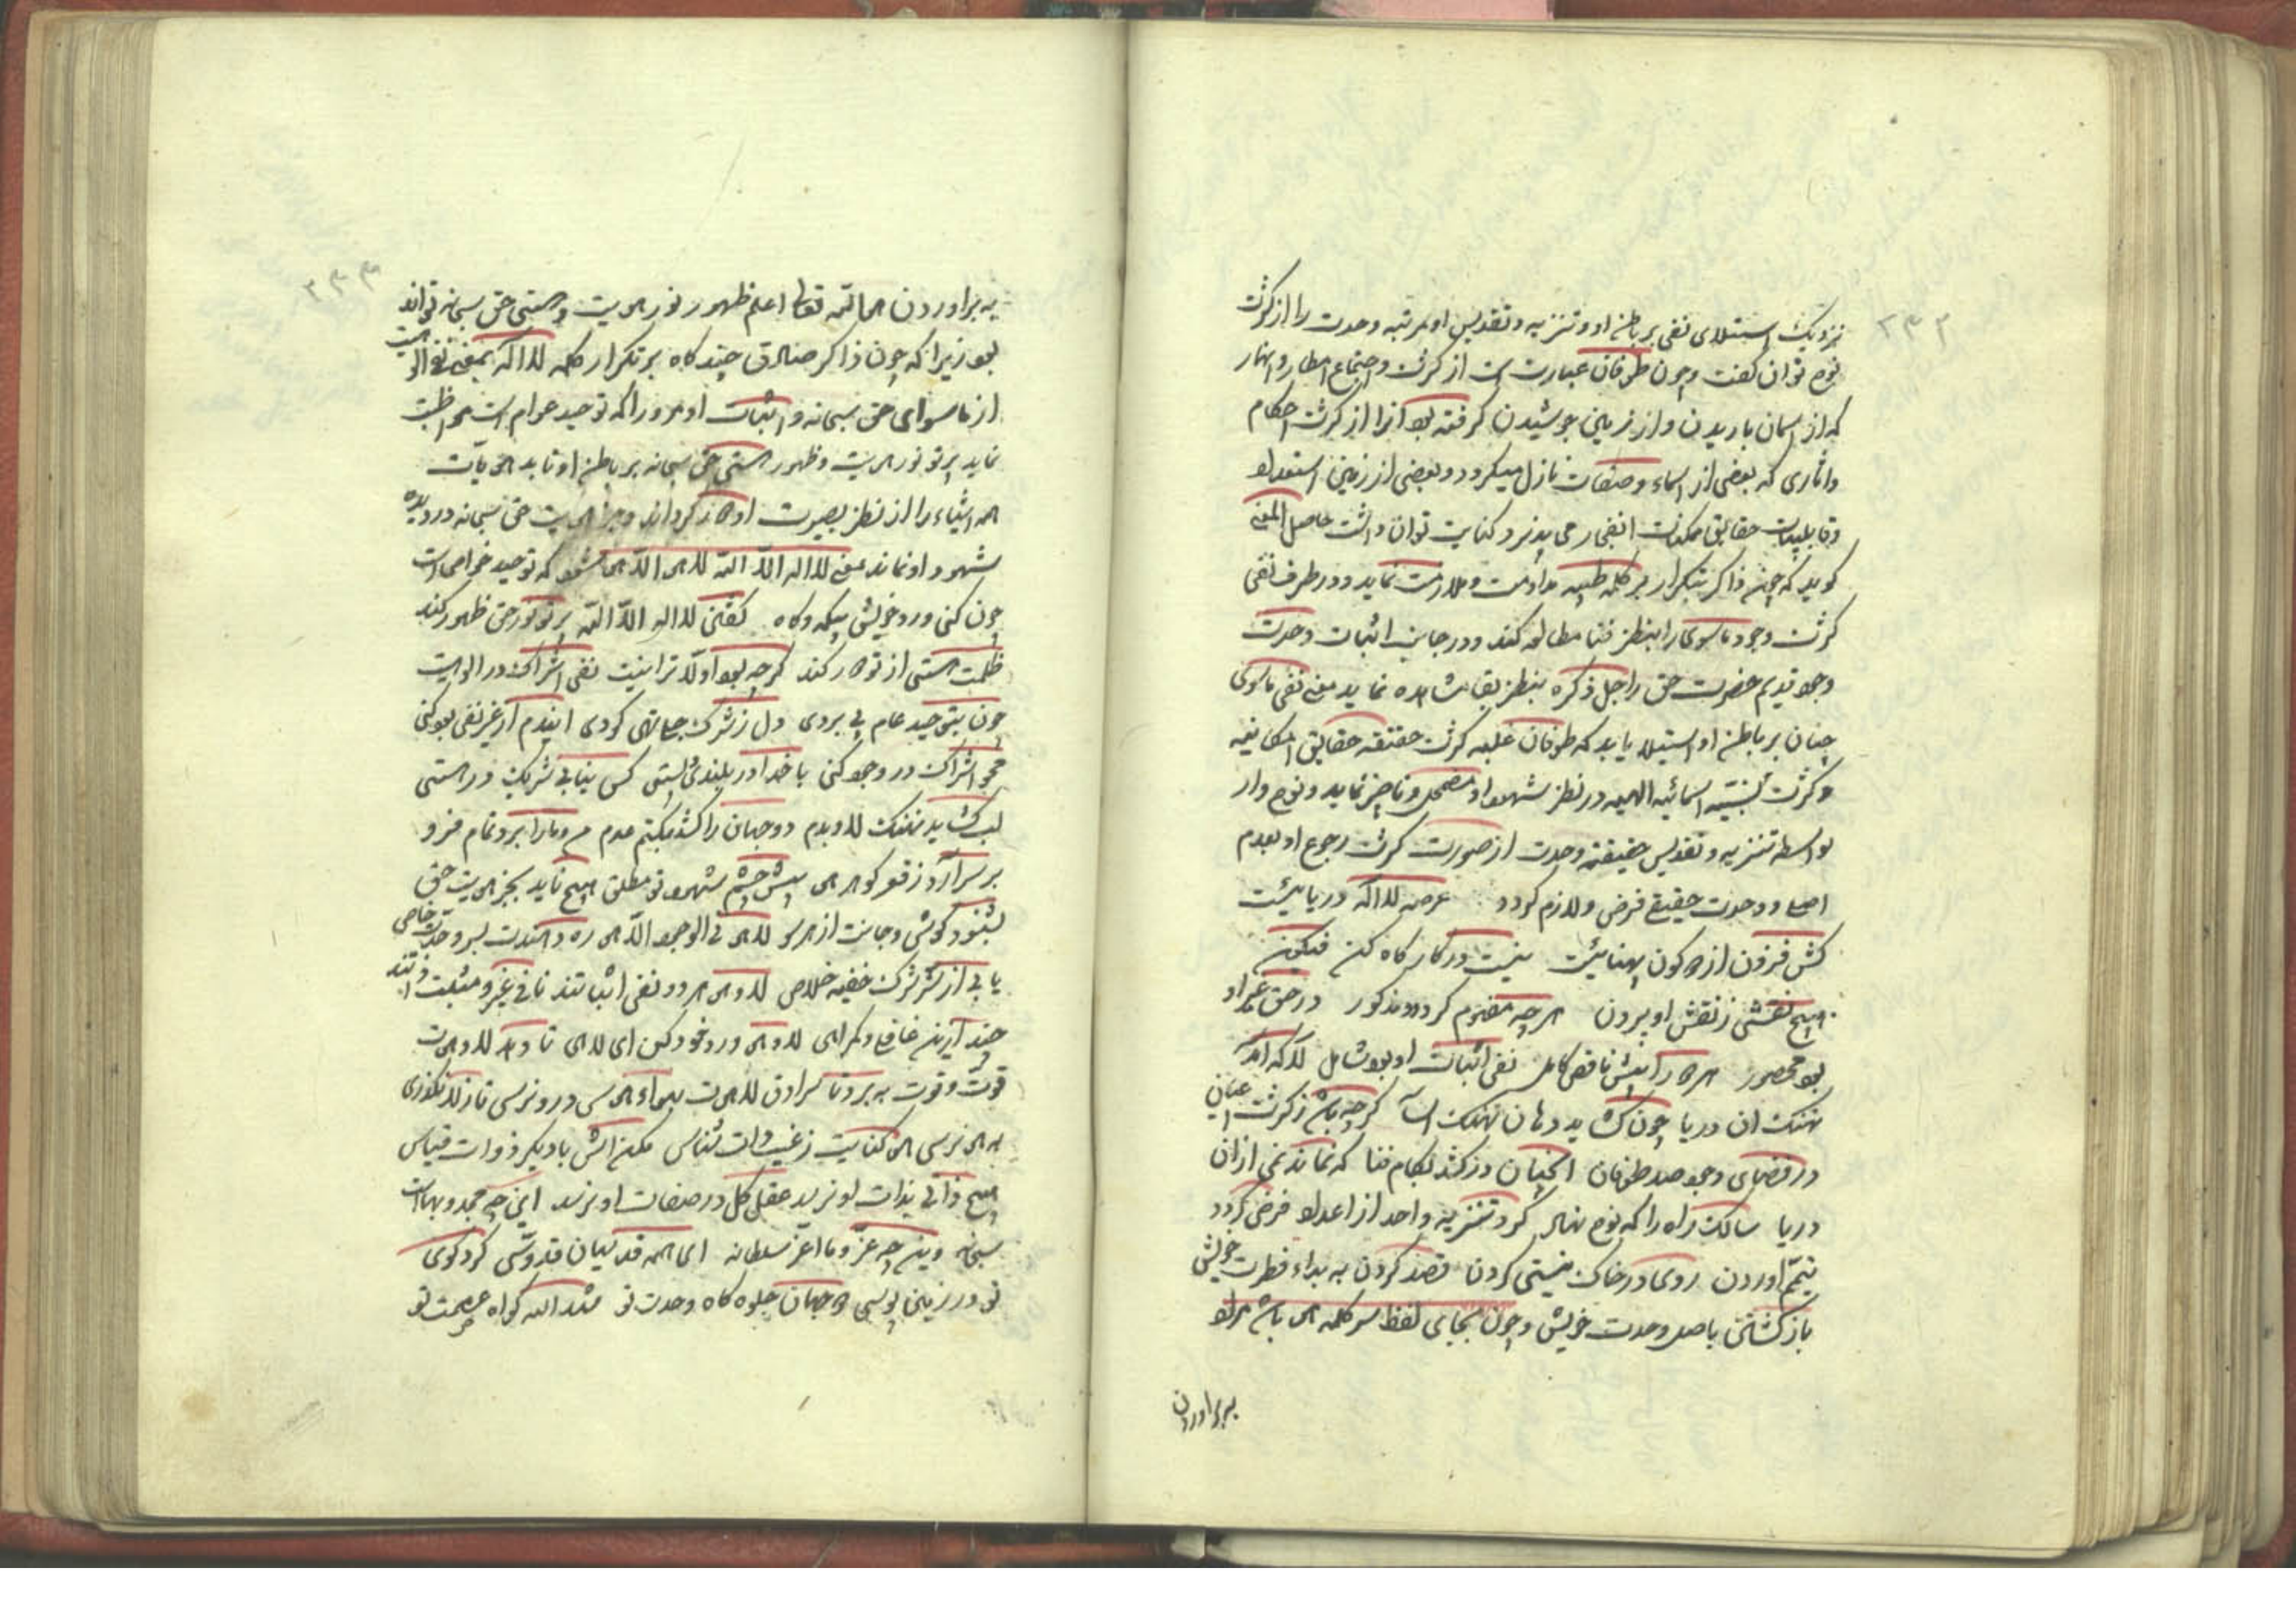 ۲۳۲
نزدیک استیلای نفی بر باطن او و تنزیه و تقدیس او مرتبه وحدت را از کثرت
نوح توان گفت و چون طوفان عبارت است از کثرت و اجتماع امطار و انهار
که از اسمان باریدن و از زمین جوشیدن گرفته بود آنرا از کثرت احکام
و اثاری که بعضی از اسماء و صفات نازل میکردد و بعضی از زمین استعداد
و قابلیات حقایق ممکنات انفجار می پذیرد کنایت توان داشت حاصل المعنی
کوید که چون ذاکر بتکرار بر کلمه طیبه مداومت و ملازمت نماید و در طرف نفی
کثرت وجود ماسوی را بنظر فنا مطالعه کند و در جانب اثبات وحدت
وجود قدیم حضرت حق را جل ذکره بنظر بقا مشاهده نماید معنی نفی ماسوی
چنان بر باطن او استیلا یابد که طوفان غلبه کثرت حقیقه حقایق امکانیه
و کثرت نسبیه اسمائیه الهیه در نظر شهود او مضمحل و ناچیز نماید و نوح وار
بواسطه تنزیه و تقدیس حقیقت وحدت از صورت کثرت رجوع او بعدم
اصلی و وحدت حقیقی فرض و لازم کردد عرصه لا اله دریاییست
کش فزون از دو کون پهناییست نیست در کار گاه کن فیکون
هیچ نقشی ز نقش او بیرون هر چه مفهوم کرد و مذکور در حق غیر او
بود محصور هر دو را بیش ناقص کامل نفی اثبات او بود شامل لا که امد
نهنک ان دریا چون کشاید دهان نهنک اسا کرچه باشد ز کثرت اعیان
در فضای وجود صد طوفان انچنان درکشد بکام فنا که نماند نمی ازان
دریا سالک راه را که نوح نهاد کرد تنزیه واحد از اعداد فرض کردد
تیمّم اوردن روی در خاک نیستی کردن قصد کردن به بداء فطرت خویش
باز کشتن باصل وحدت خویش و چون بجای لفظ سر کلمه هی باشد مراد
ببر اوردن
۲۳۳
به بر اوردن ها الله تعالی اعلم ظهور نور هویت و هستی حق سبحانه تواند
بود زیرا که چون ذاکر صادق چند کاه بر تکرار کلمه لا اله بمعنی نفی الوهیت
از ماسوای حق سبحانه و اثبات او مرورا که توحید عوام است مواظبت
نماید پرتو نور هویت و ظهور هستی حق سبحانه بر باطن او تابد هویات
همه اشیاء را از نظر بصیرت او دور کرداند و جز هویت حق سبحانه در دیده
شهود او نماند معنی لا اله الا الله لا هو الا هو شود که توحید خواص است
چون کنی ورد خویش بیکه و کاه کفتن لا اله الا الله پرتو نور حق ظهور کند
ظلمت هستی از تو دور کند کرچه بود اولا ترا نیت نفی اشراک در الوهیت
چون بتوحید عام پی بردی دل ز شرک جلی تهی کردی ایندم از غیر نفی بود کنی
محو اشراک در وجود کنی با خدا در بلندی و پستی کس نیابی شریک در هستی
لب کشاید نهنک لا و بدم دو جهان را کشد بکتم عدم من و ما را برد تمام فرو
بر سر آرد ز قعر کوهر هو پیش چشم شهود تو مطلق هیچ ناید بجز هویت حق
بشنود کوش و جانت از هر سو لا هو فی الوجود الا هو ره دهندت بسر وحدت خاص
یابی از شر شرک خفیه خلاص لا و هو هر دو نفی اثباتند نافی غیر و مثبت ذاتند
چند ازین غافلی و کمراهی لا و هو ورد خود کن ای لاهی تا دهد لا و هوت
قوّت و قوت به برد تا سرادق لاهوت بهواء هوس درو نرسی تا ز لا نکذری
به هو نرسی هو کنایت ز غیب ذات شناس مکن انش بادیکر ذوات قیاس
هیچ ذاتی بذات او نرسد عقل کل در صفات او نرسد این چه مجد و بهاست
سبحانه وین چه عزّ و ما اعزّ سلطانه ای همه قدسیان قدّوسی کرد کوی
تو در زمین بوسی دو جهان جلوه کاه وحدت تو شهد الله کواه عصمت تو